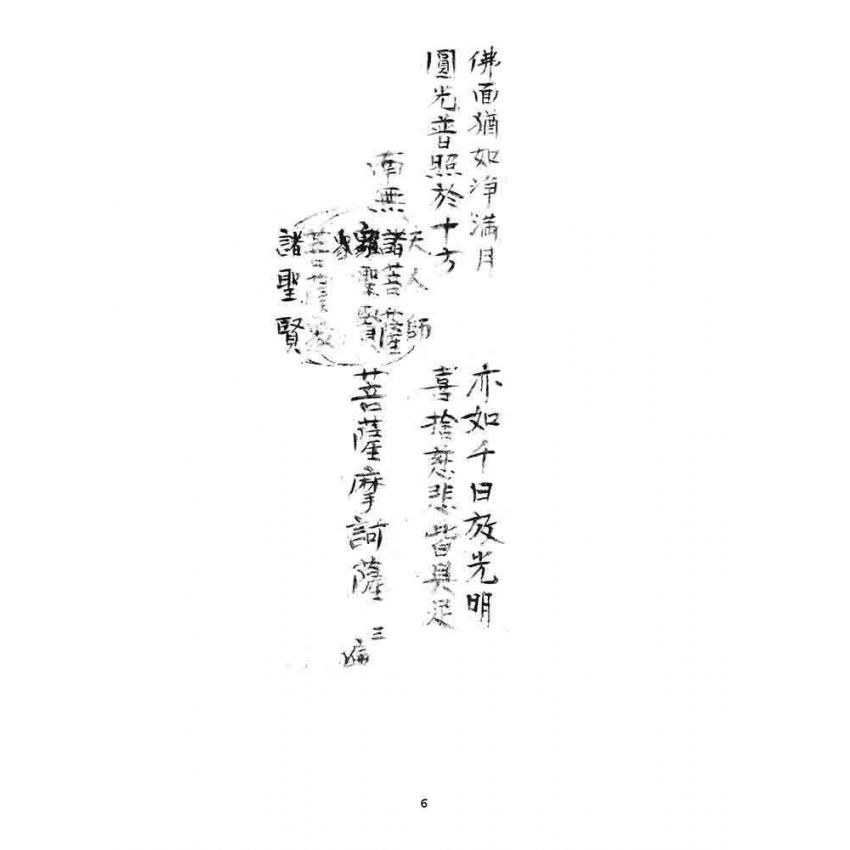 佛面猶如淨滿月 亦如千日放光明
圓光普照於十方 喜捨慈悲皆具足
南無
天人師
諸菩薩
聖賢
諸聖賢
菩薩摩訶薩 三遍
6